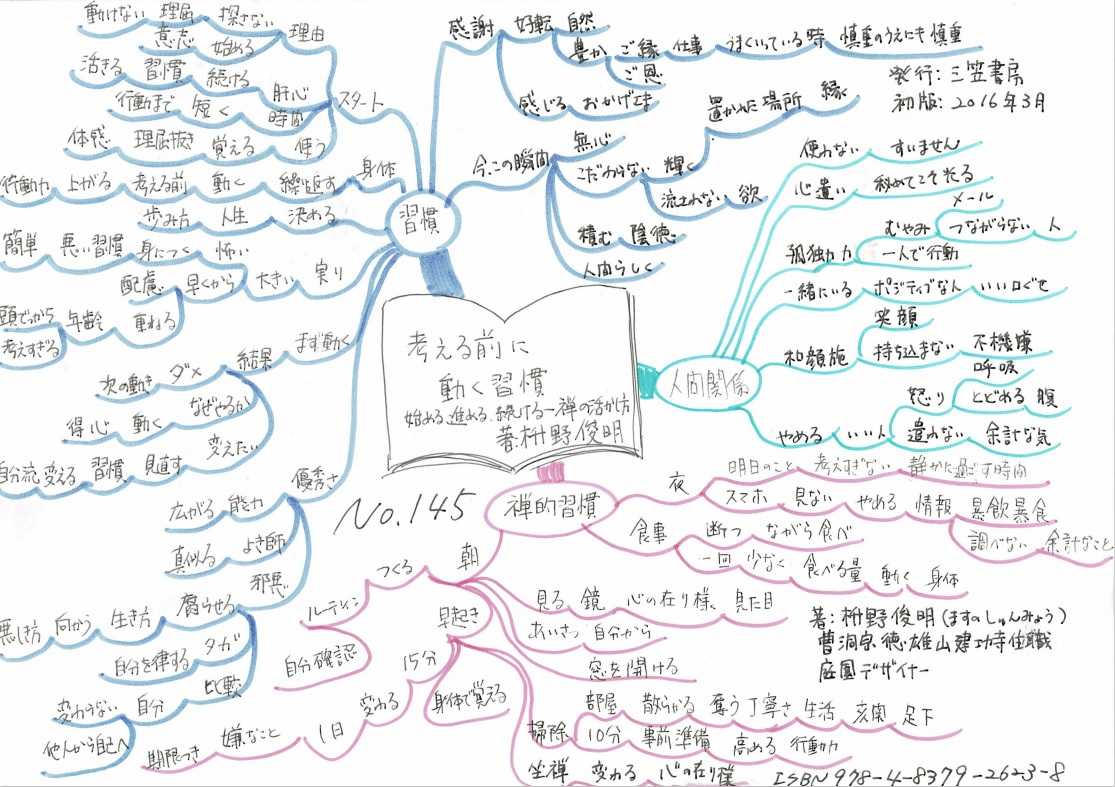 考える前に
動く習慣
始める、進める、続ける－禅の活かし方
著:枡野俊明
No.145
発行:三笠書房
初版:2016年3月
習慣
スタート
理由 探さない 理屈 動けない
始める 意志
肝心 続ける 習慣 活きる
時間 短く 行動まで
使う 覚える 理屈抜き 体感
身体
繰り返す 動く 考える前 上がる 行動力
決める 人生 歩み方
怖い 身につく 悪い習慣 簡単
まず動く
実り 大きい 早くから 配慮
重ねる 年齢 頭でっかち
考えすぎる
結果 ダメ 次の動き
なぜやるか 動く 得心
変えたい 見直す 習慣 変える 自分流
優秀さ
能力 広がる
よき師 真似る
邪悪 腐らせる 生き方 向かう 悪しき方
タガ 自分を律する
比較 自分 変わらない
他人から自己へ
感謝 好転 自然
豊か ご縁 仕事 うまくいっている時 慎重のうえにも慎重
ご恩
感じる おかげさま
今、この瞬間 無心
こだわらない 輝く 置かれた場所 縁
流されない 欲
積む 陰徳
人間らしく
人間関係
使わない すいません
心遣い 秘めてこそ伝わる
孤独力 むやみ メール
つながらない 人
一人で行動
一緒にいる ポジティブな人 いい口ぐせ
和顔施 笑顔
持ち込まない 不機嫌
やめる いい人 怒り 呼吸
とどめる 腹
遣わない 余計な気
禅的習慣
夜 明日のこと 考えすぎない 静かに過ごす時間
スマホ 見ない やめる 情報 暴飲暴食
調べない 余計なこと
食事 断つ ながら食べ
一回 少なく 食べる量 動く 身体
朝 つくる ルーティン 自分確認
早起き 15分 変わる 1日 嫌なこと 期限つき
身体で覚える
見る 鏡 心の在り様 見た目
あいさつ 自分から
窓を開ける
掃除 部屋 散らかる 奪う 丁寧さ 生活 玄関 足下
10分 事前準備 高める 行動力
坐禅 変わる 心の在り様
著:枡野俊明(ますのしゅんみょう)
曹洞宗徳雄山建功寺住職
庭園デザイナー
ISBN 978-4-8379-2623-8